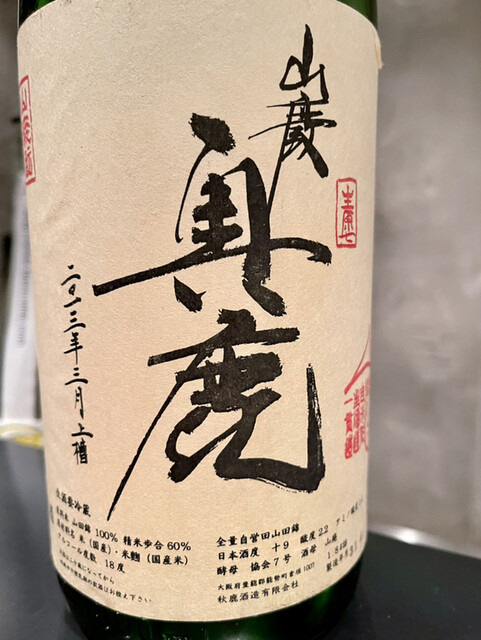 山廃
奥鹿
生原
二〇一三年三月上槽
生酒要冷蔵
原料米 山田錦 100% 精米歩合 60%
原材料名 米(国産)・米麹(国産米)
アルコール度数 18度
全量自営田山田錦
日本酒度 +9 酸度2.2 アミノ酸度
酵母 協会7号 酒母 山廃
大阪府豊能郡能勢町倉垣1007
秋鹿酒造有限会社